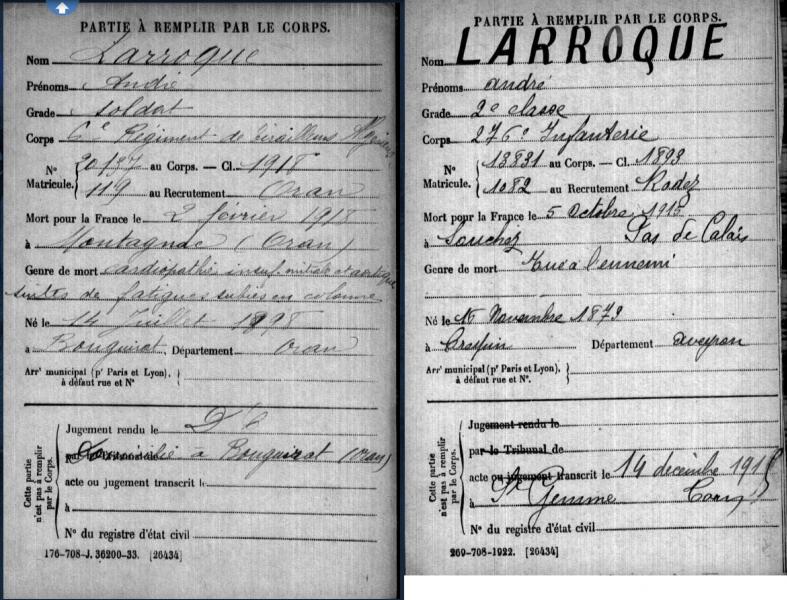 PARTIE À REMPLIR PAR LE CORPS.
Nom Larroque
Prénoms André
Grade Soldat
Corps 6e Régiment de Tirailleurs Algériens
N° Matricule. 20137 au Corps. — Cl. 1918
119 au Recrutement Oran
Mort pour la France le 2 février 1918
à Montagnac (Oran)
Genre de mort cardiopathie insuf. mitrale et aortique
suites de fatigues subies en colonne
Né le 14 Juillet 1898
à Bouguirat, Département Oran
Arrt municipal (pr Paris et Lyon), à défaut rue et N°
Cette partie n'est pas à remplir par le Corps.
Jugement rendu le
Domicilié à Bouguirat (Oran)
acte ou jugement transcrit le
à
N° du registre d'état civil
176-708-J. 36200-33. [26434]
PARTIE À REMPLIR PAR LE CORPS.
Nom LARROQUE
Prénoms andré
Grade 2e classe
Corps 276e Infanterie
N° Matricule. 13831 au Corps. — Cl. 1893
1082 au Recrutement Rodez
Mort pour la France le 5 Octobre 1915
à Souchez Pas de Calais
Genre de mort Tué à l'ennemi
Né le Novembre 1873
à Crespin Département aveyron
Arrt municipal (pr Paris et Lyon), à défaut rue et N°.
Cette partie n'est pas à remplir par le Corps.
Jugement rendu le
par le Tribunal de
acte ou jugement transcrit le 14 décembre
à Ste Gemme
N° du registre d'état civil
269-708-1922. [26434]